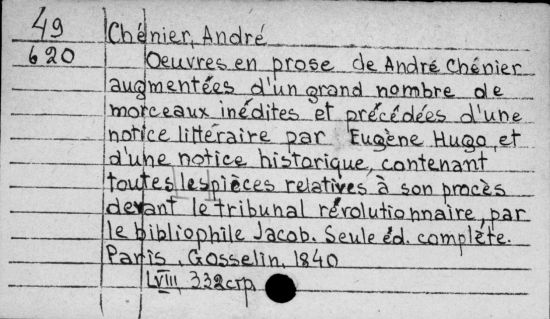 49 Chénier, André
620 Oeuvres en prose de André Chénier
augmentées d'un grand nombre de
morceaux inédites et précédées d'une
notice littéraire par Eugène Hugo et
d'une notice historique, contenant
toutes les pièces relatives à son procès
devant le tribunal révolutionnaire, par
le bibliophile Jacob. Seule éd. complète.
Paris, Gosselin, 1840
LVIII, 332 стр.